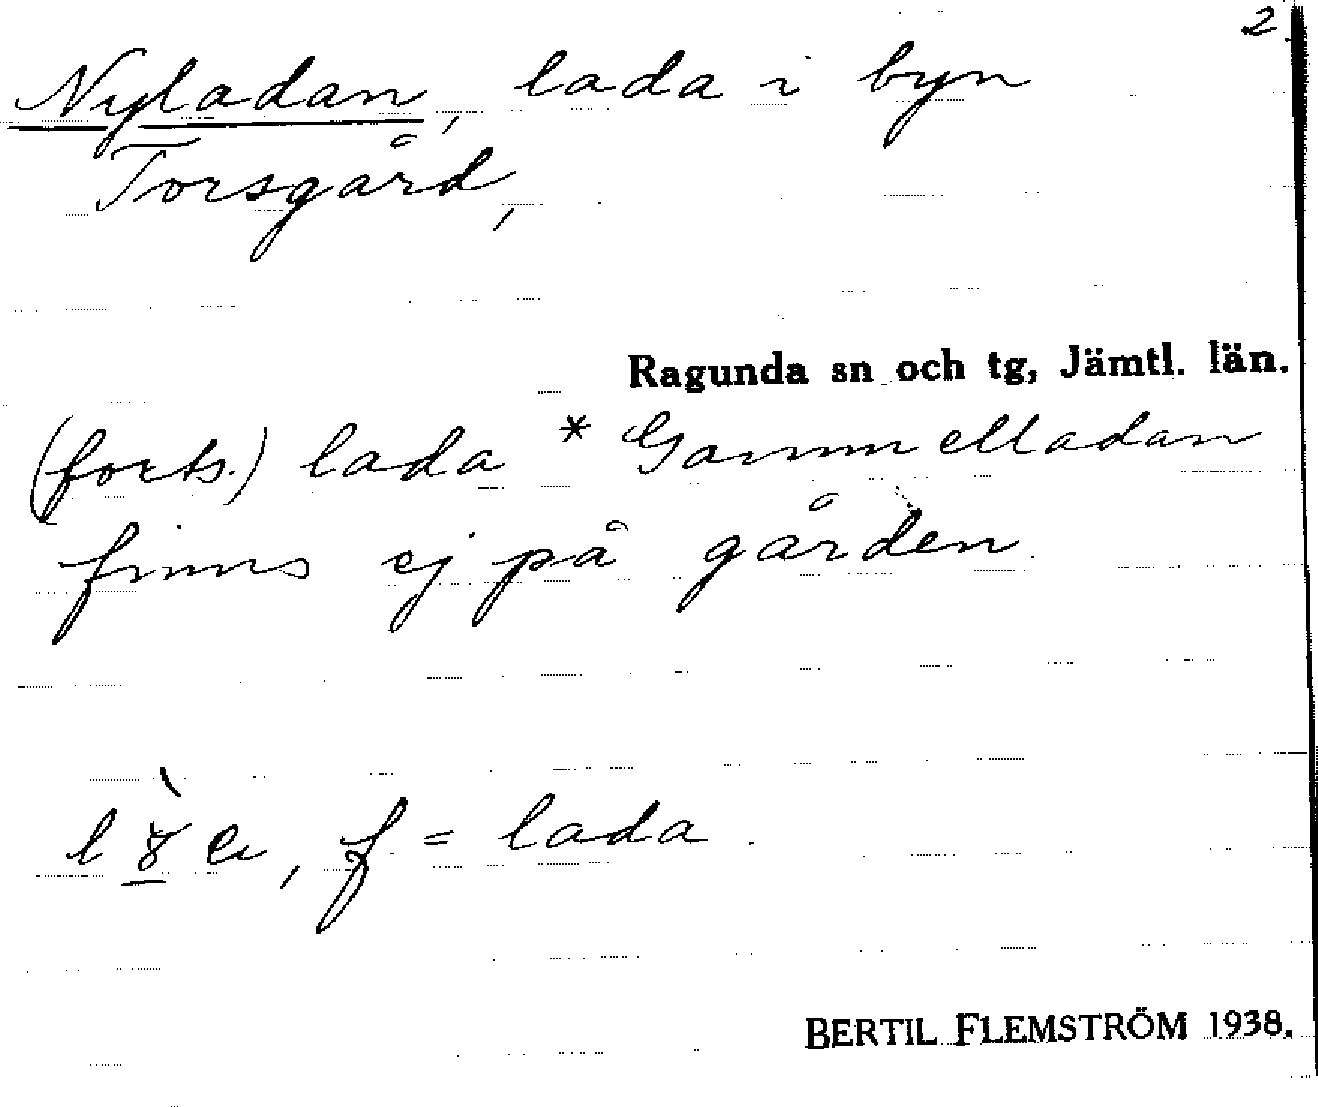 2.
Nyladan, lada i byn
Torsgård,
Ragunda sn och tg, Jämtl. län.
(forts.) lada * Gammelladan
finns ej på gården.
f = lada.
BERTIL FLEMSTRÖM 1938.